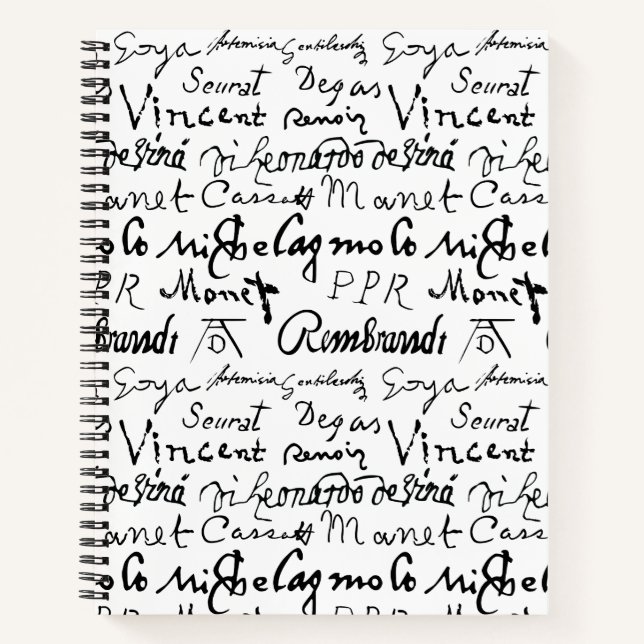 Goya Artemisia Gentileschi Goya Artemisia
Seurat Degas Seurat
Vincent Renoir Vincent
Leonardo
anet Cassatt Manet Cass
olo Michelagniolo Michel
PR Monet PPR Monet
brandt AD Rembrandt
Goya Artemisia Gentileschi Goya Artemisia
Seurat Degas Seurat
Vincent Renoir Vincent
Leonardo
anet Cassatt Manet Cass
olo Michelagniolo Michel
PR Monet PPR Monet